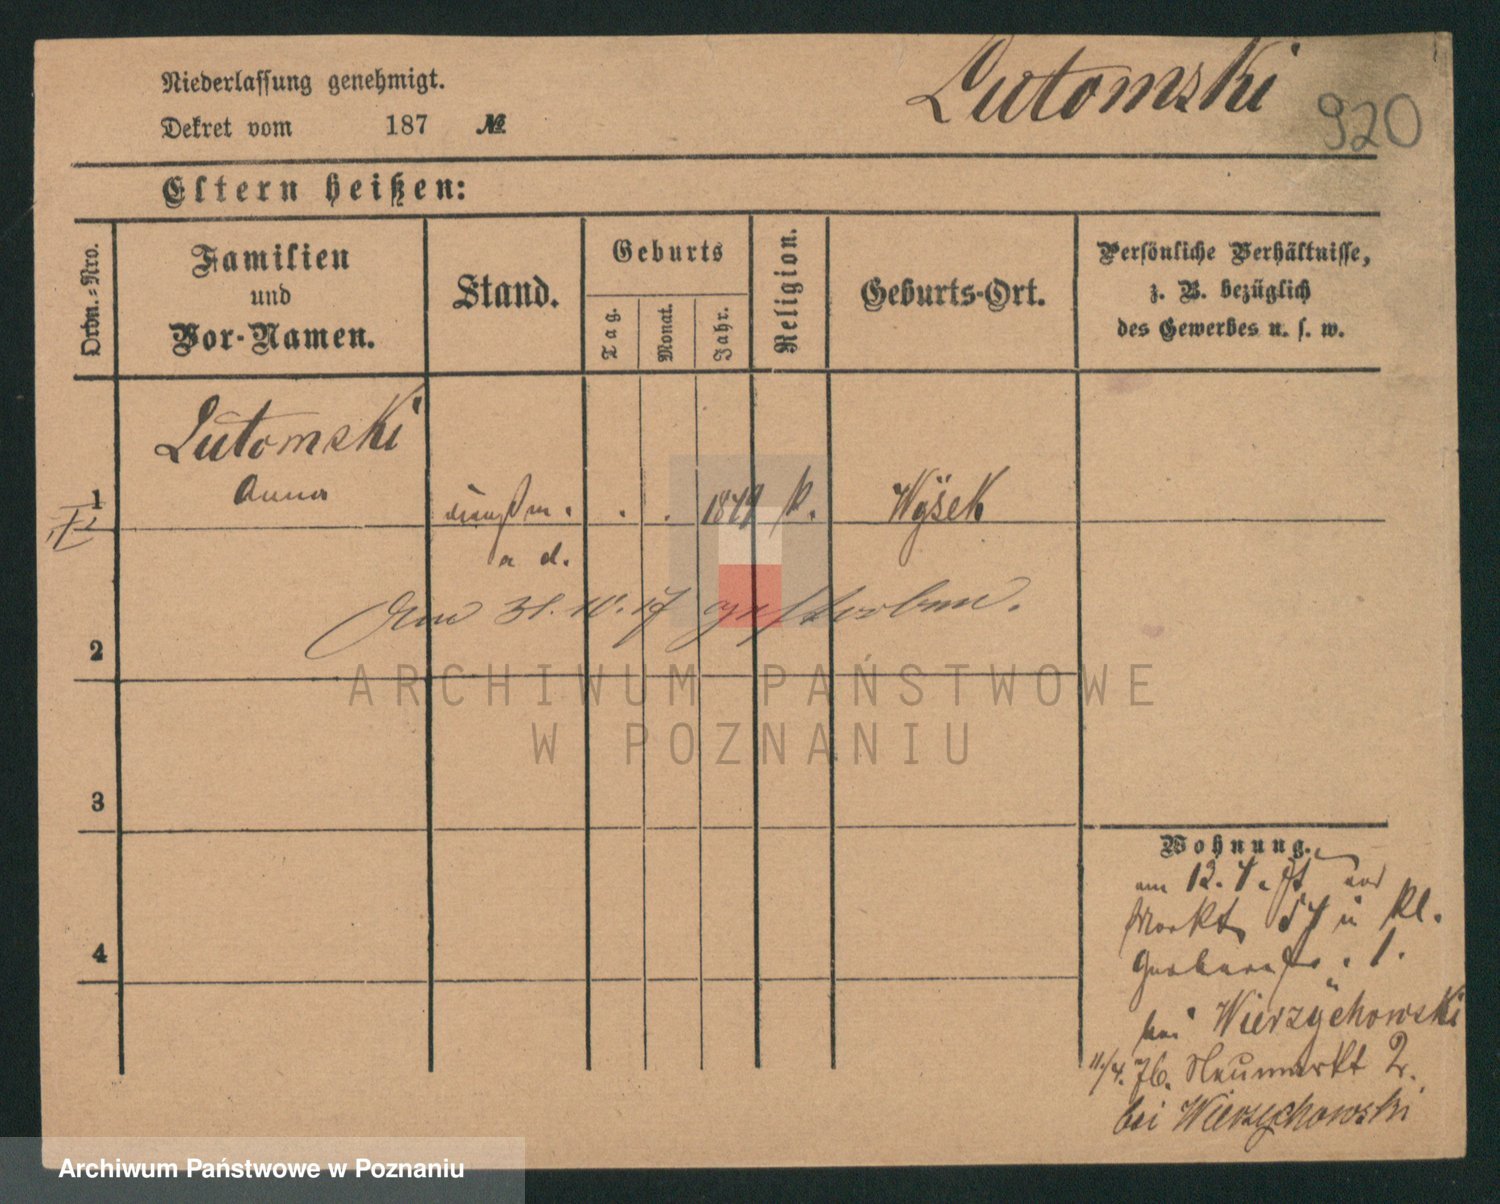 Lutomski
920
Niederlassung genehmigt.
Dekret vom 187 №
Eltern heißen:
Ordn.-Nro.
Familien
und
Vor-Namen.
Stand.
Geburts
Tag.
Monat.
Jahr.
Religion.
Geburts-Ort.
Persönliche Verhältnisse,
z. B. bezüglich
des Gewerbes u. s. w.
Lutomski
Anna
1
. . k. Wÿsek
a d.
2
3
4
gestorben.
Wohnung.
am 12. 4.
Markt u Kl.
1.
bei Wierzÿchowski
11/4. 76. Neumarkt 2.
bei Wierzychowski
ARCHIWUM PAŃSTWOWE
W POZNANIU
Archiwum Państwowe w Poznaniu